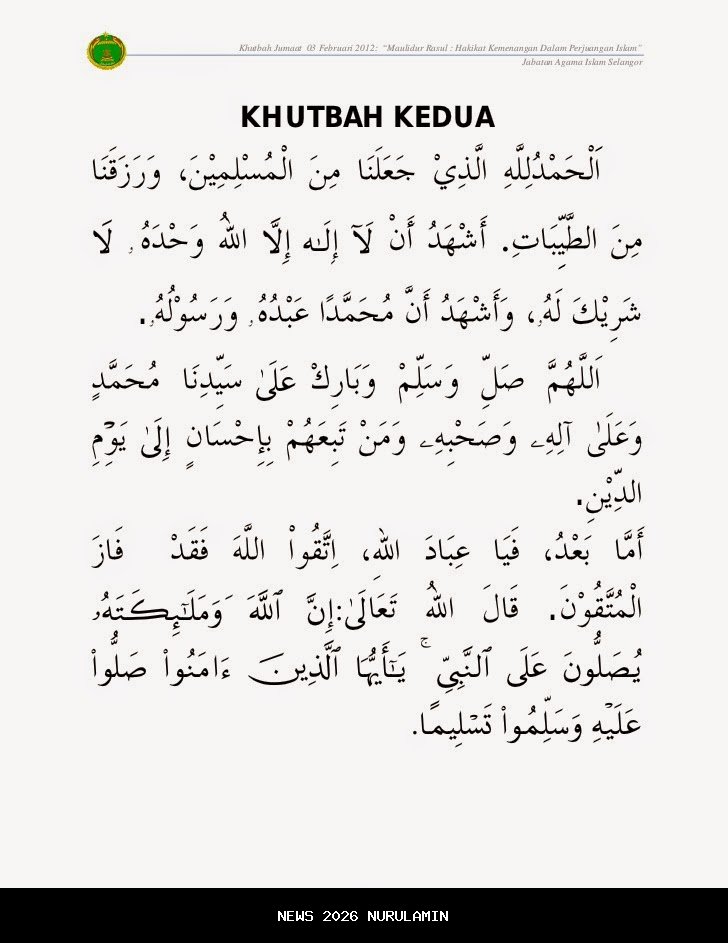 Khutbah Jumaat 03 Februari 2012: “Maulidur Rasul : Hakikat Kemenangan Dalam Perjuangan Islam”
Jabatan Agama Islam Selangor
KHUTBAH KEDUA
اَلْحَمْدُلِلَّهِ الَّذِيْ جَعَلَنَا مِنَ الْمُسْلِمِيْنَ، وَرَزَقَنَا
مِنَ الطَّيِّبَاتِ. أَشْهَدُ أَنْ لَآ إِلَـٰه إِلَّا اللهُ وَحْدَهُۥ لَا
شَرِيْكَ لَهُۥ، وَأَشْهَدُ أَنَّ مُحَمَّدًا عَبْدُهُۥ وَرَسُوْلُهُۥ.
اَللَّهُمَّ صَلِّ وَسَلِّمْ وَبَارِكْ عَلَىٰ سَيِّدِنَا مُحَمَّدٍ
وَعَلَىٰ آلِهِۦ وَصَحْبِهِۦ وَمَنْ تَبِعَهُمْ بِإِحْسَانٍ إِلَىٰ يَوْمِ
الدِّيْنِ.
أَمَّا بَعْدُ، فَيَا عِبَادَ اللهِ، اِتَّقُواْ اللَّهَ فَقَدْ فَازَ
الْمُتَّقُوْنَ. قَالَ اللهُ تَعَالَىٰ:إِنَّ ٱللَّهَ وَمَلَـٰٓئِكَتَهُۥ
يُصَلُّونَ عَلَى ٱلنَّبِىِّ ۚ يَـٰٓأَيُّهَا ٱلَّذِينَ ءَامَنُواْ صَلُّواْ
عَلَيْهِ وَسَلِّمُواْ تَسْلِيمًا.
NEWS 2026 NURULAMIN